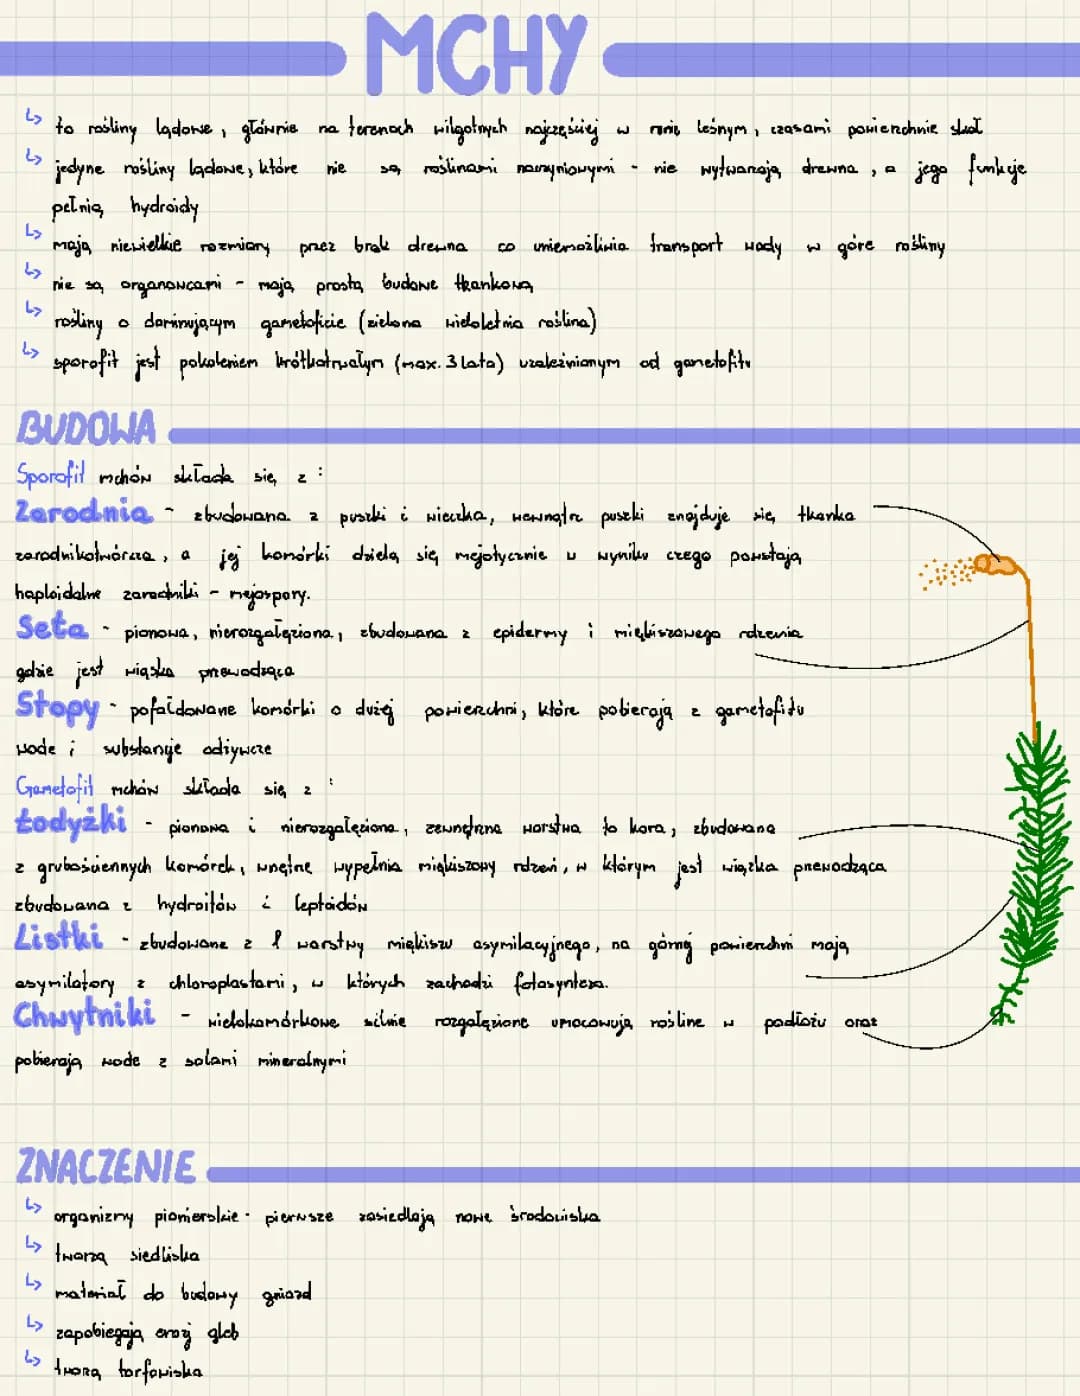 MCHY
↳ to rośliny lądowe, głównie na terenach wilgotnych najczęściej w runie leśnym, czasami powierzchnie skał
↳ jedyne rośliny lądowe, które nie są roślinami naczyniowymi - nie wytwarzają drewna, a jego funkcje
pełnią hydroidy
↳ mają niewielkie rozmiary przez brak drewna co uniemożliwia transport wody w góre rośliny
↳ nie są organowcami - mają prostą budowe tkankową
↳ rośliny o dominującym gametoficie (zielona wieloletnia roślina)
↳ sporofit jest pokoleniem krótkotrwałym (max. 3 lata) uzależnianym od gametofitu
BUDOWA
Sporofit mchów składa się z :
Zarodnia - zbudowana z puszki i wieczka, wewnątrz puszki znajduje się tkanka
zarodnikotwórcza, a jej komórki dzielą się mejotycznie w wyniku czego powstają
haploidalne zarodniki - mejospory.
Seta - pionowa, nierozgałęziona, zbudowana z epidermy i miękiszowego rdzenia
gdzie jest wiązka przewodząca
Stopy - pofałdowane komórki o dużej powierzchni, które pobierają z gametofitu
wode i substancje odżywcze
Gametofit mchów składa się z :
Łodyżki - pionowa i nierozgałęziona, zewnętrzna warstwa to kora, zbudowana
z grubościennych komórek, wnętrze wypełnia miękiszowy rdzeń, w którym jest wiązka przewodząca
zbudowana z hydroitów i leptoidów
Listki - zbudowane z 1 warstwy miękiszu asymilacyjnego, na górnej powierzchni mają
asymilatory z chloroplastami, w których zachodzi fotosynteza.
Chwytniki - wielokomórkowe silnie rozgałęzione umocowują rośline w podłożu oraz
pobierają wode z solami mineralnymi
ZNACZENIE
↳ organizmy pionierskie - pierwsze zasiedlają nowe środowiska
↳ tworzą siedliska
↳ materiał do budowy gniazd
↳ zapobiegają erozj gleb
↳ tworzą torfowiska